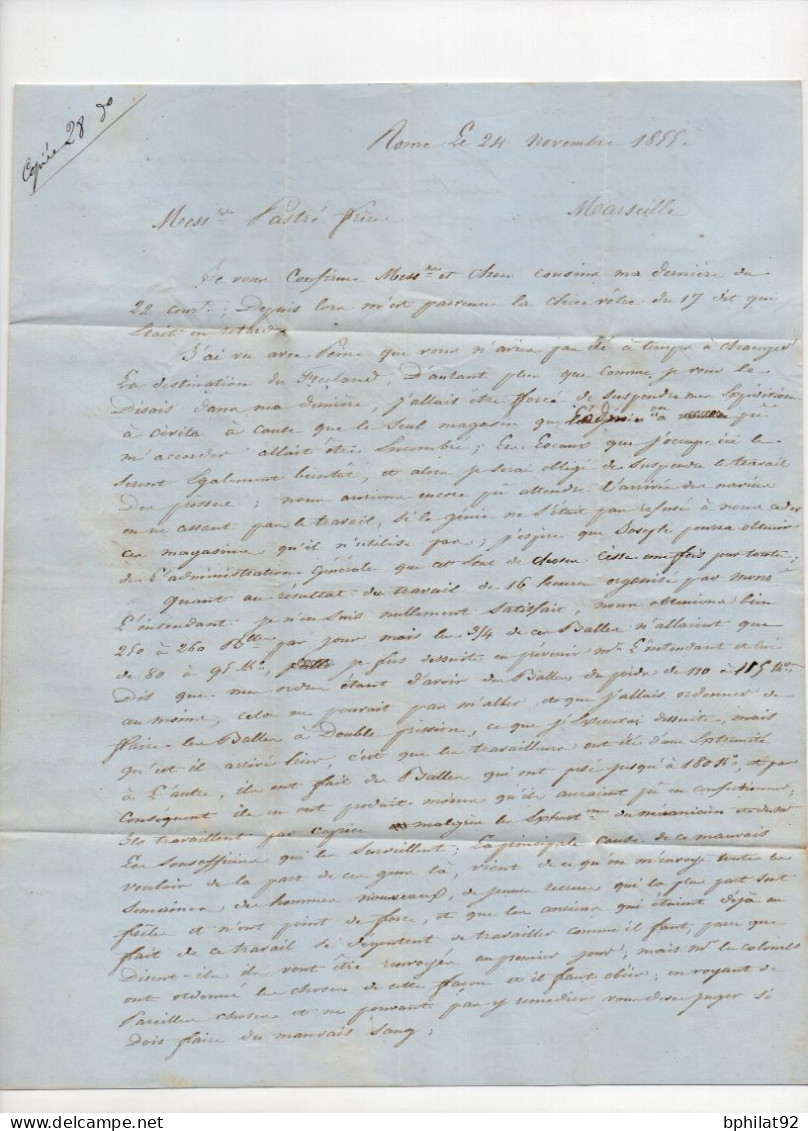 Copiée 28 do
Rome Le 24 Novembre 1855.
Messrs Pastré frères Marseille
Je vous Confirme Messrs et chers cousins ma dernière du
22 Court; Depuis lors m'est parvenue la chère vôtre du 17 dit qui
était en retard
J'ai vu avec Peine que vous n'aviez pas été à temps à changer
La destination du ; D'autant plus que comme je vous le
Disais dans ma dernière, j'allais être forcé de suspendre mes Expéditions
à Civita à cause que le seul magasin que a pu
m'accorder allait être Encombré; Les Locaux que j'occupe ici le
seront Egalement bientôt, et alors je serai obligé de suspendre le travail
Des presses; nous aurions encore pû attendre L'arrivée des navires
en ne cessant pas le travail, si le génie ne s'était pas refusé à nous céder
ces magasins qu'il n'utilise pas; j'espère que Joseph pourra obtenir
de L'administration Générale que cet état de choses cesse une fois pour toute;
Quant au résultat du travail de 16 heures organisé par Monsr
L'intendant je n'en suis nullement satisfait, nous obtenions bien
250 à 260 Blles par jour mais les 3/4 de ces Balles n'allaient que
de 80 à 95 Ko, je fus dessuite en prévenir Mr L'intendant et lui
Dis que mes ordres étant d'avoir des Balles du poids de 110 à 115 Ko
au moins, cela ne pouvait pas m'aller, et que j'allais ordonner de
faire les Balles à Double pression, ce que j'Exécutai dessuite, mais
qu'est il arrivé hier, c'est que les travailleurs ont été d'une Extrémité
à L'autre, ils ont fait des Balles qui ont pesé jusqu'à 180 Ko, et par
Conséquent ils en ont produit moins qu'ils auraient pû en confectionner;
Ils travaillent par caprice malgré les du mécanicien et de Mr
Les Sousofficiers qui les Surveillent; La principale cause de ce mauvais
vouloir de la part de ces gens là, vient de ce qu'on m'envoye toutes les
Semaines des hommes nouveaux, de jeunes recrues qui la plus part sont
faibles et n'ont point de force, et que les anciens qui étaient déjà au
fait de ce travail se dégoutent de travailler comme il faut, parce que
Disent-ils ils vont être renvoyés au premier jour; mais Mrs les colonels
ont ordonné les choses de cette façon et il faut obéir; en voyant de
Pareilles choses et ne pouvant pas y remédier vous devez juger si
Dois faire du mauvais Sang;
bphilat92